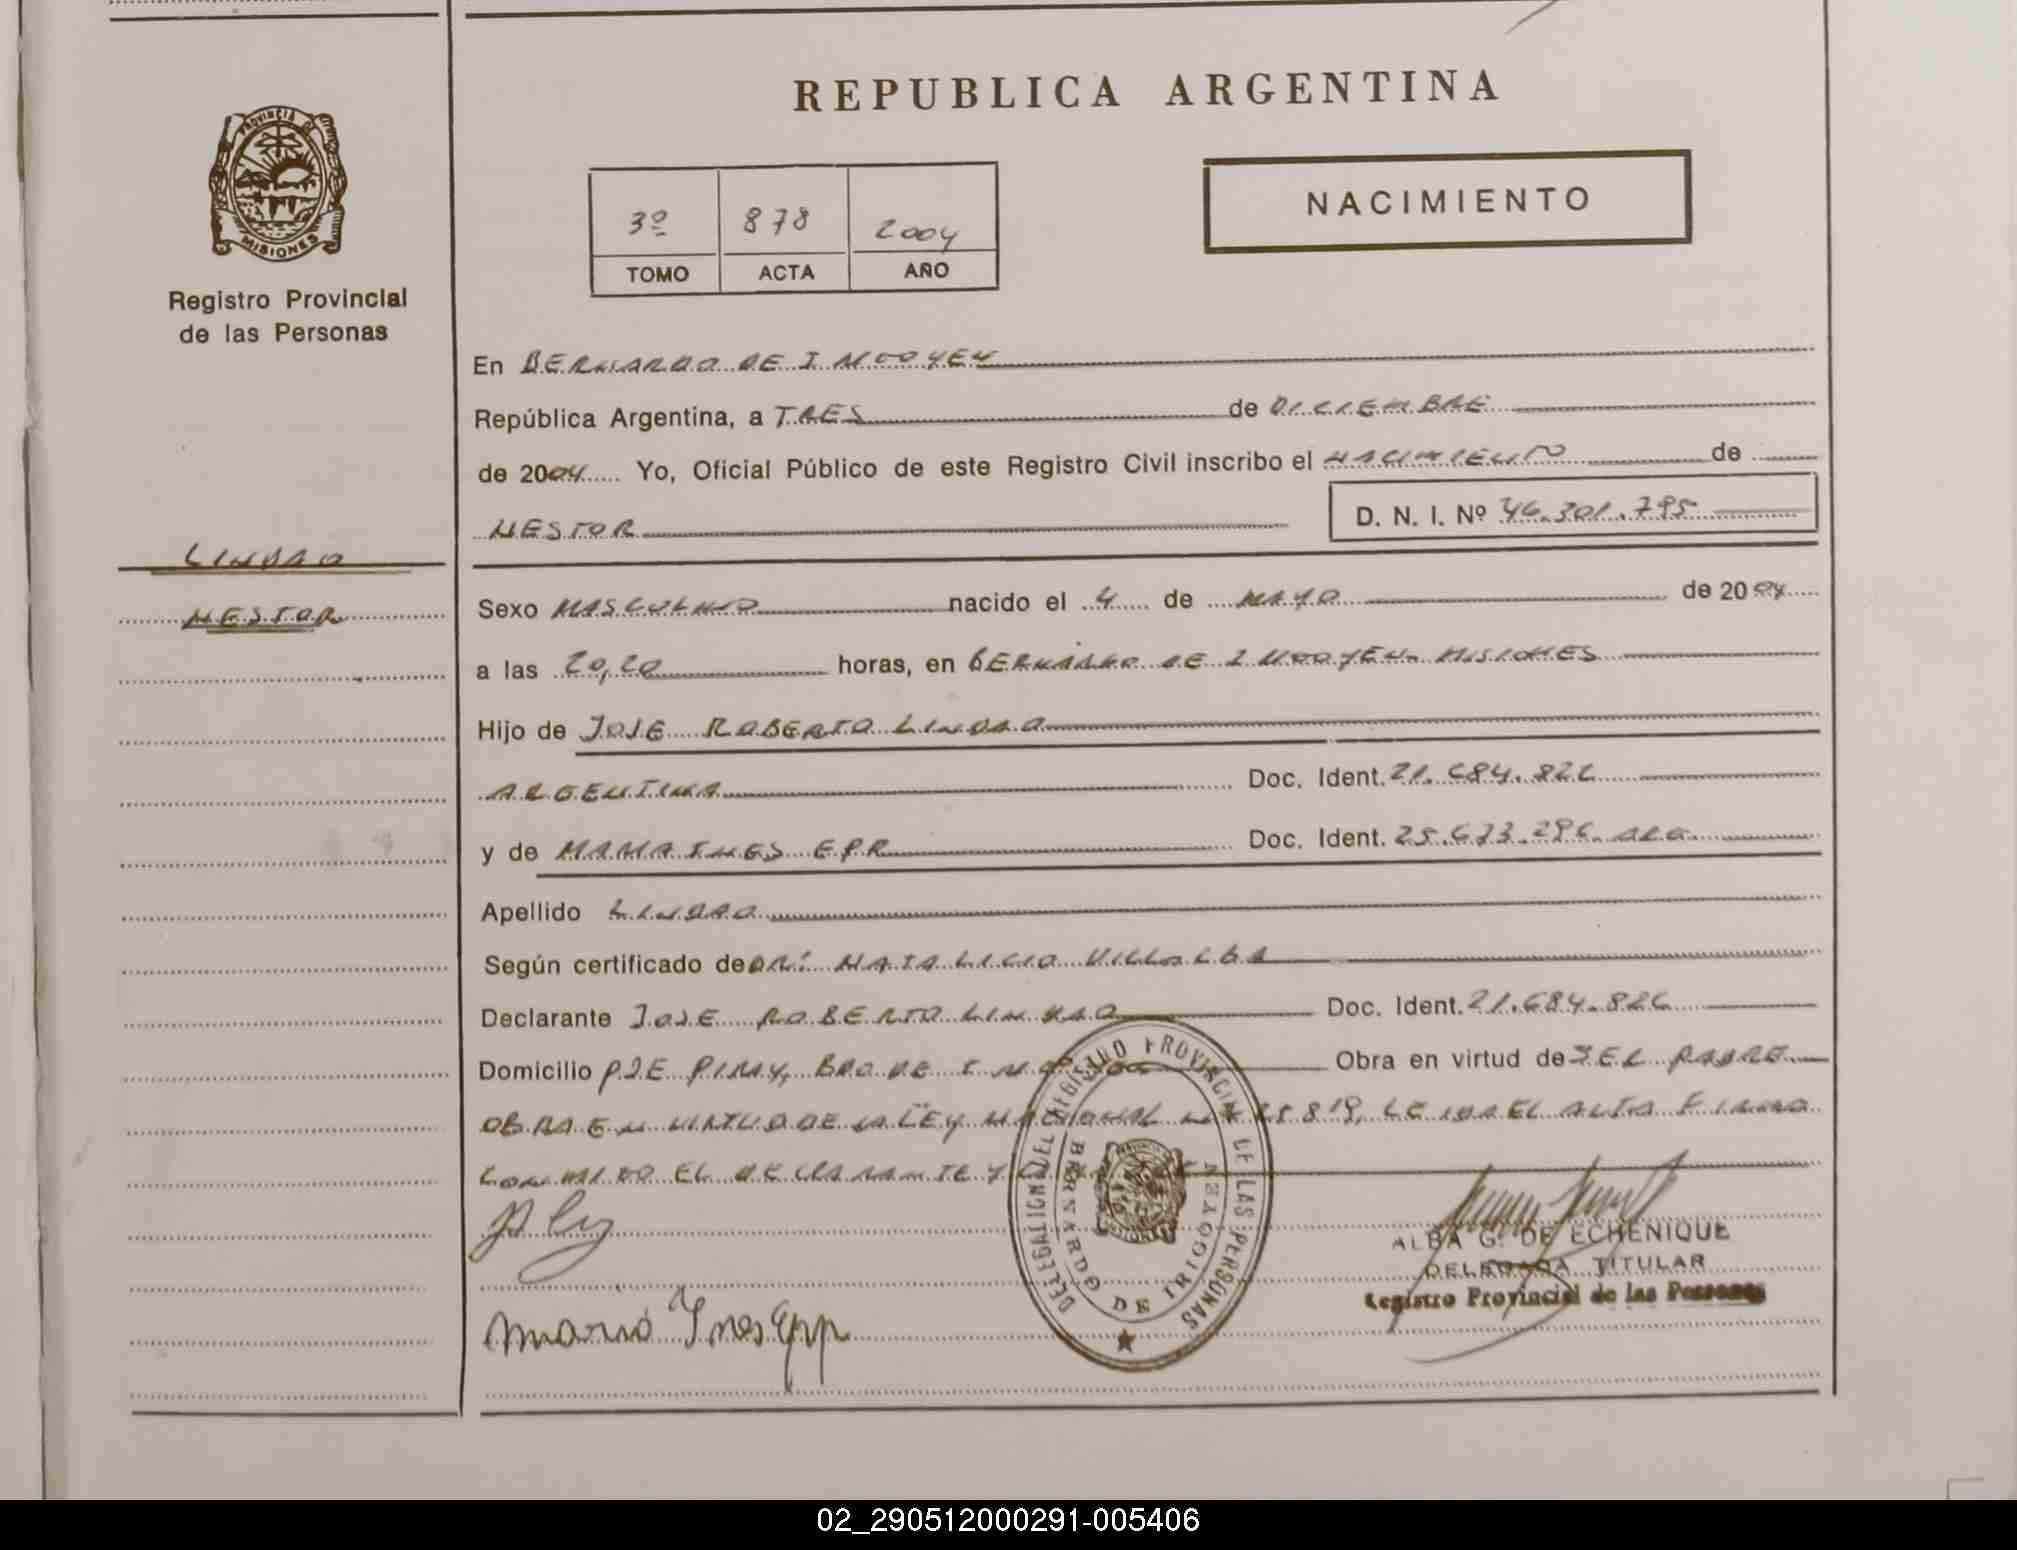 REPUBLICA ARGENTINA
PROVINCIA DE
MISIONES
Registro Provincial
de las Personas
3º 878 2004
TOMO ACTA AÑO
NACIMIENTO
En BERNARDO DE IRIGOYEN
República Argentina, a TRES de DICIEMBRE
de 2004 Yo, Oficial Público de este Registro Civil inscribo el NACIMIENTO de
NESTOR D. N. I. Nº 46.301.795
LINDAO
NESTOR
Sexo MASCULINO nacido el 4 de MAYO de 2004
a las 20,20 horas, en BERNARDO DE IRIGOYEN MISIONES
Hijo de JOSE ROBERTO LINDAO
ARGENTINA Doc. Ident. 21.684.826
y de MARIA INES EPP Doc. Ident. 25.673.296 ARG
Apellido LINDAO
Según certificado de DR: NATALICIO VILLALBA
Declarante JOSE ROBERTO LINDAO Doc. Ident. 21.684.826
Domicilio PJE BDO DE Obra en virtud de SEL PADRE
OBRA EN VIRTUD DE LA LEY NACIONAL Nº 25.819, LEIDA EL ACTA FIRMA
CONMIGO EL DECLARANTE Y
Maria Ines Epp
DELEGACION DEL REGISTRO PROVINCIAL DE LAS PERSONAS
BERNARDO DE IRIGOYEN
ALBA G. DE ECHENIQUE
DELEGADA TITULAR
Registro Provincial de las Personas
02_290512000291-005406